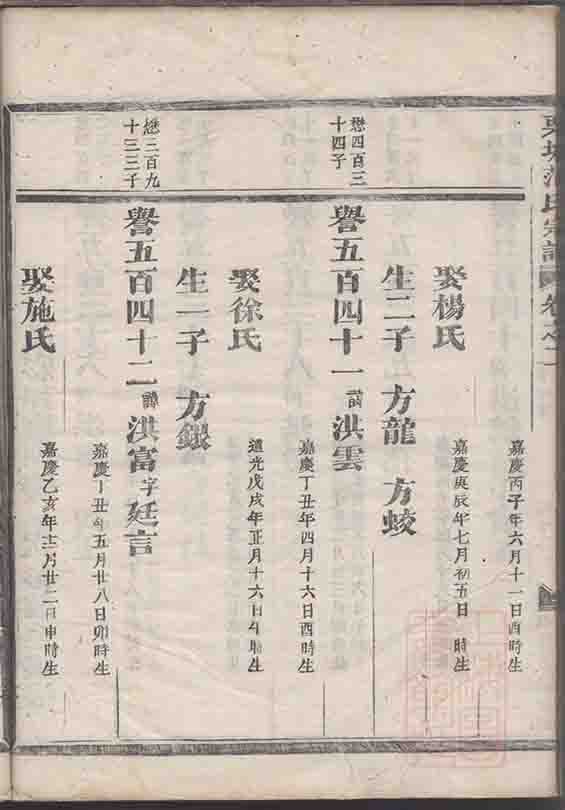 氏宗譜 卷之
嘉慶丙子年六月十一日酉時生
娶楊氏
嘉慶庚辰年七月初五日 時生
生二子 方龍 方蛟
懋四百三
十四子
譽五百四十一 諱洪雲
嘉慶丁丑年四月十六日酉時生
娶徐氏
道光戊戌年正月十六日午時生
生一子 方銀
懋三百九
十三子
譽五百四十二 諱洪富字廷言
嘉慶丁丑年五月廿八日卯時生
娶施氏
嘉慶乙亥年十二月廿二日申時生